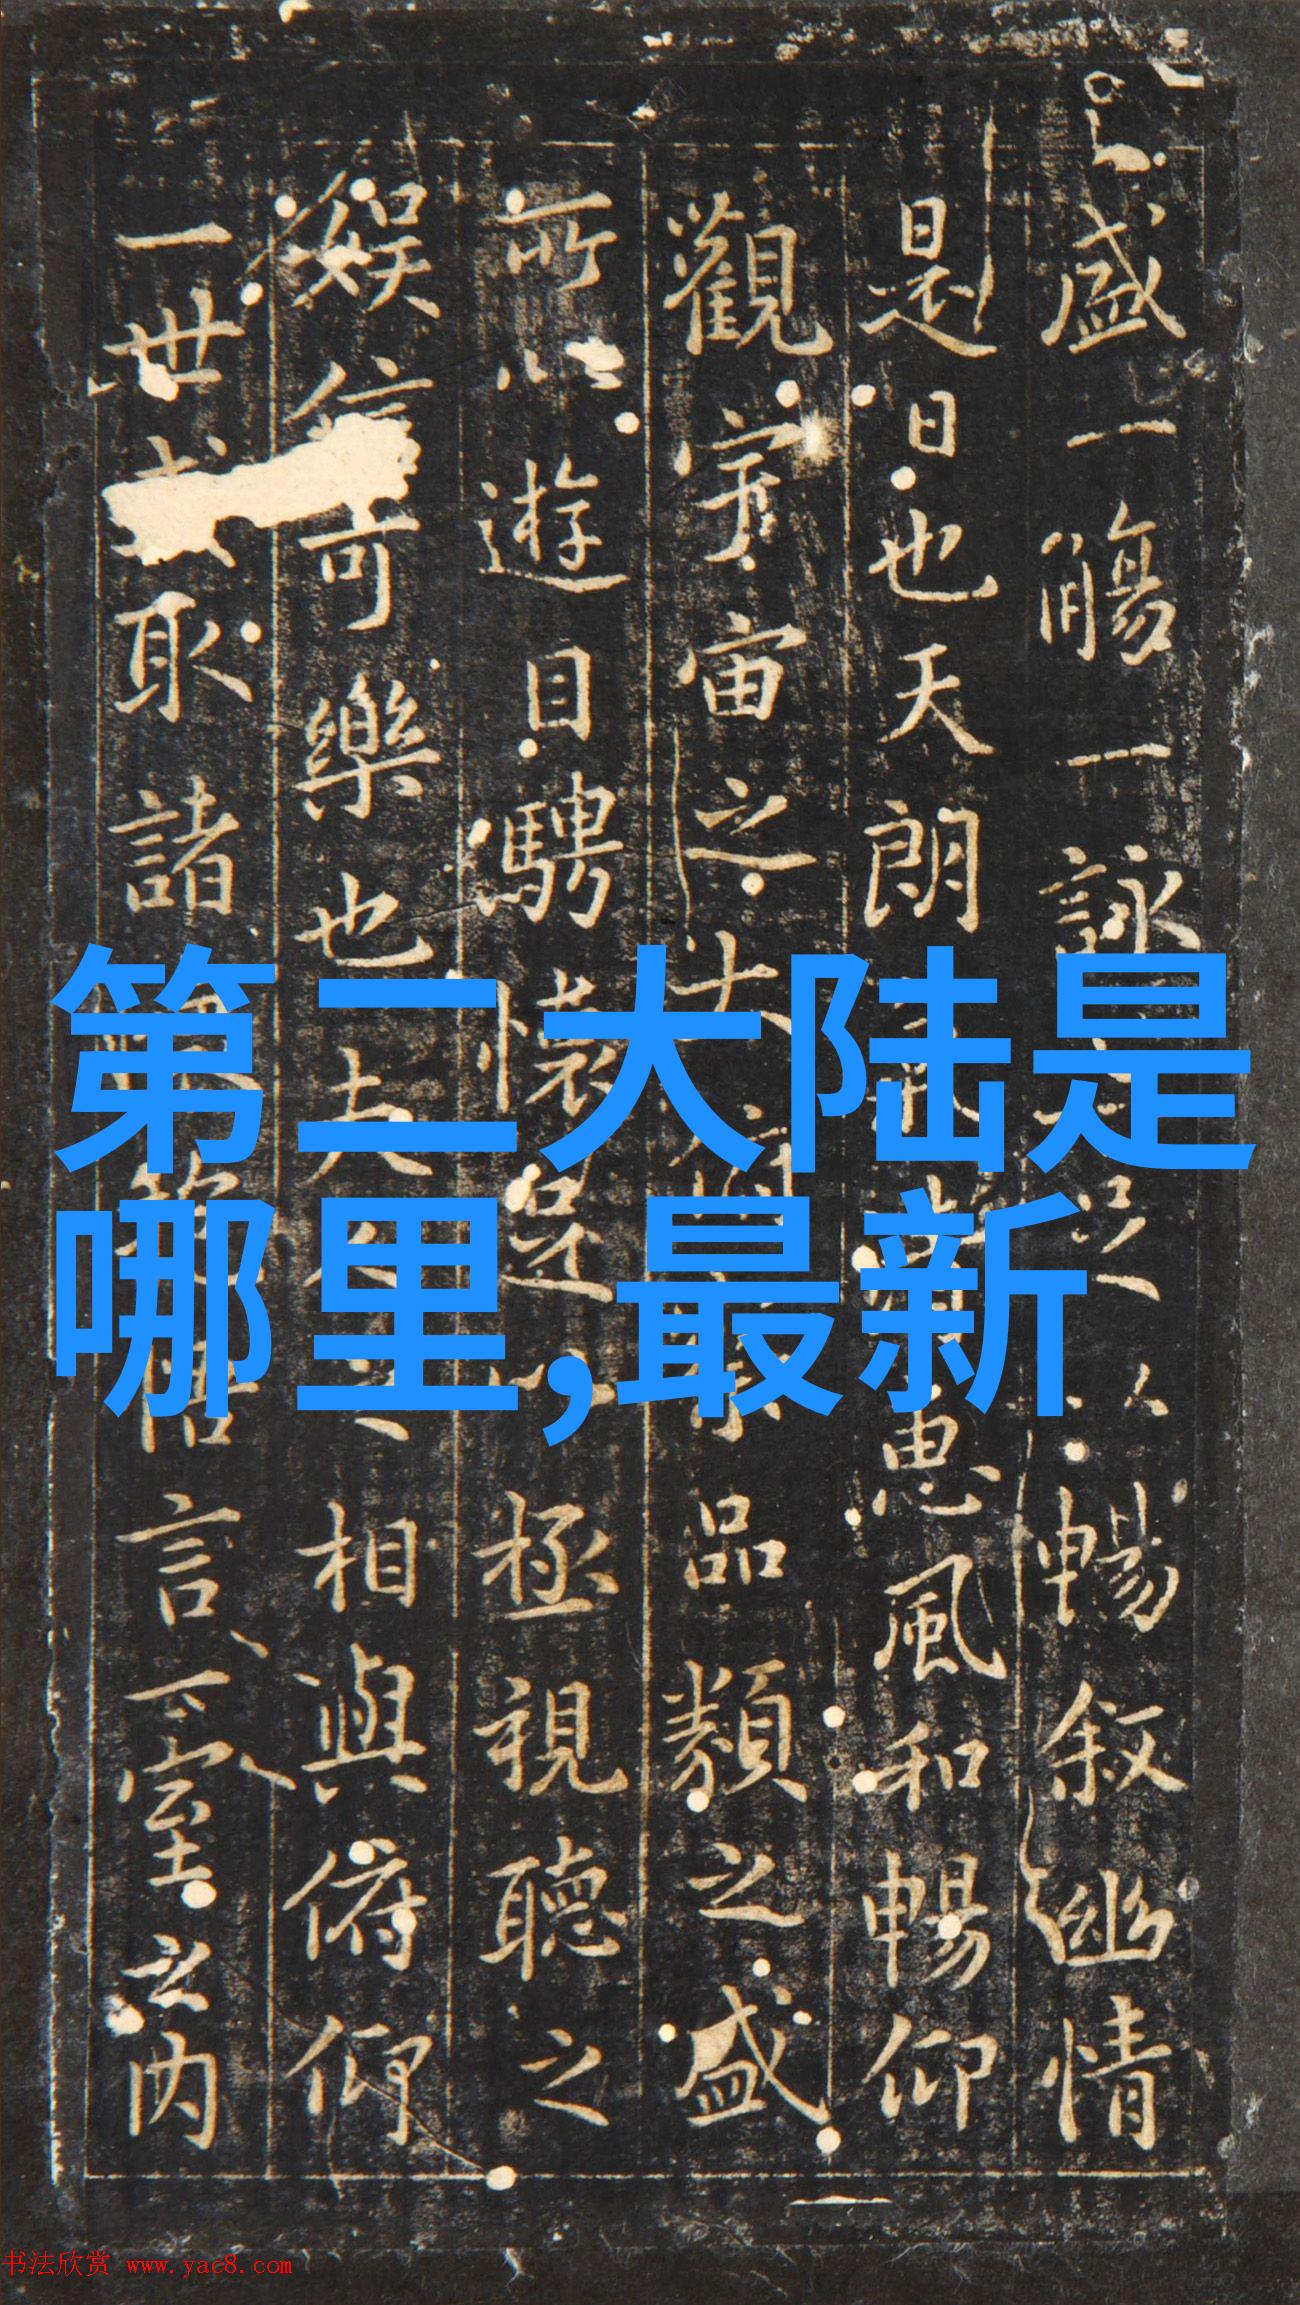 盛一觴一詠足以暢叙幽情
是日也天朗惠風和暢仰
觀宇宙之大俯品類之盛
所以遊目騁懷足以極視聽之
娱信可樂也夫人之相與俯仰
一世取諸悟言一室之内
第二大陆是
哪里,最新
书法欣赏 www.yac8.com